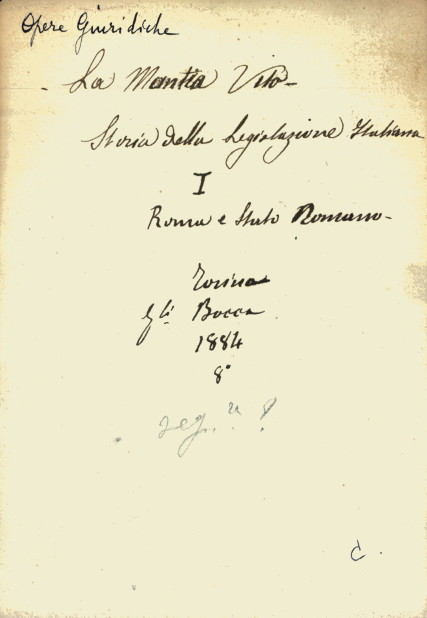 Opere Giuridiche
La Mantia Vito -
Storia della Legislazione Italiana
I
Roma e Stato Romano -
Torino
F.lli Bocca
1884
8°
C.